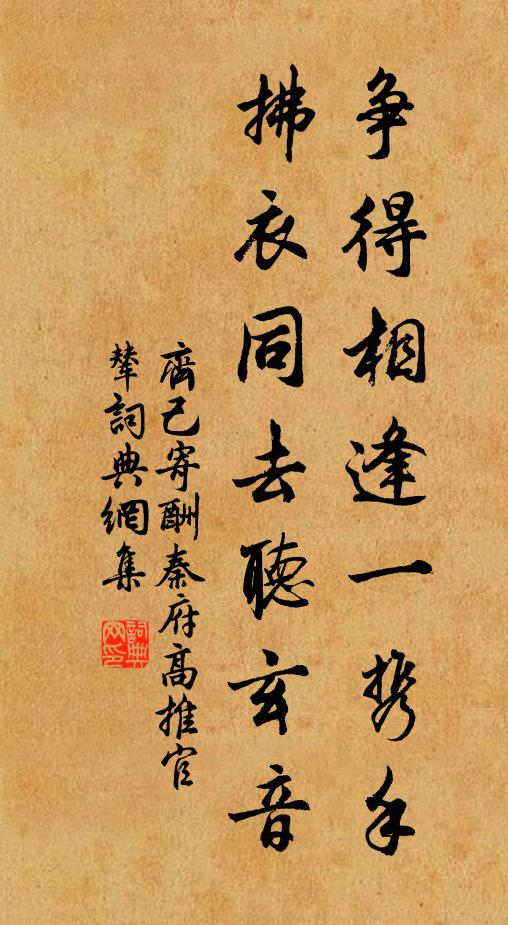 争得相逢一携手
拂衣同去聽玄音
齊己寄酬秦府高推官
輦詞典網集
詞典
网印